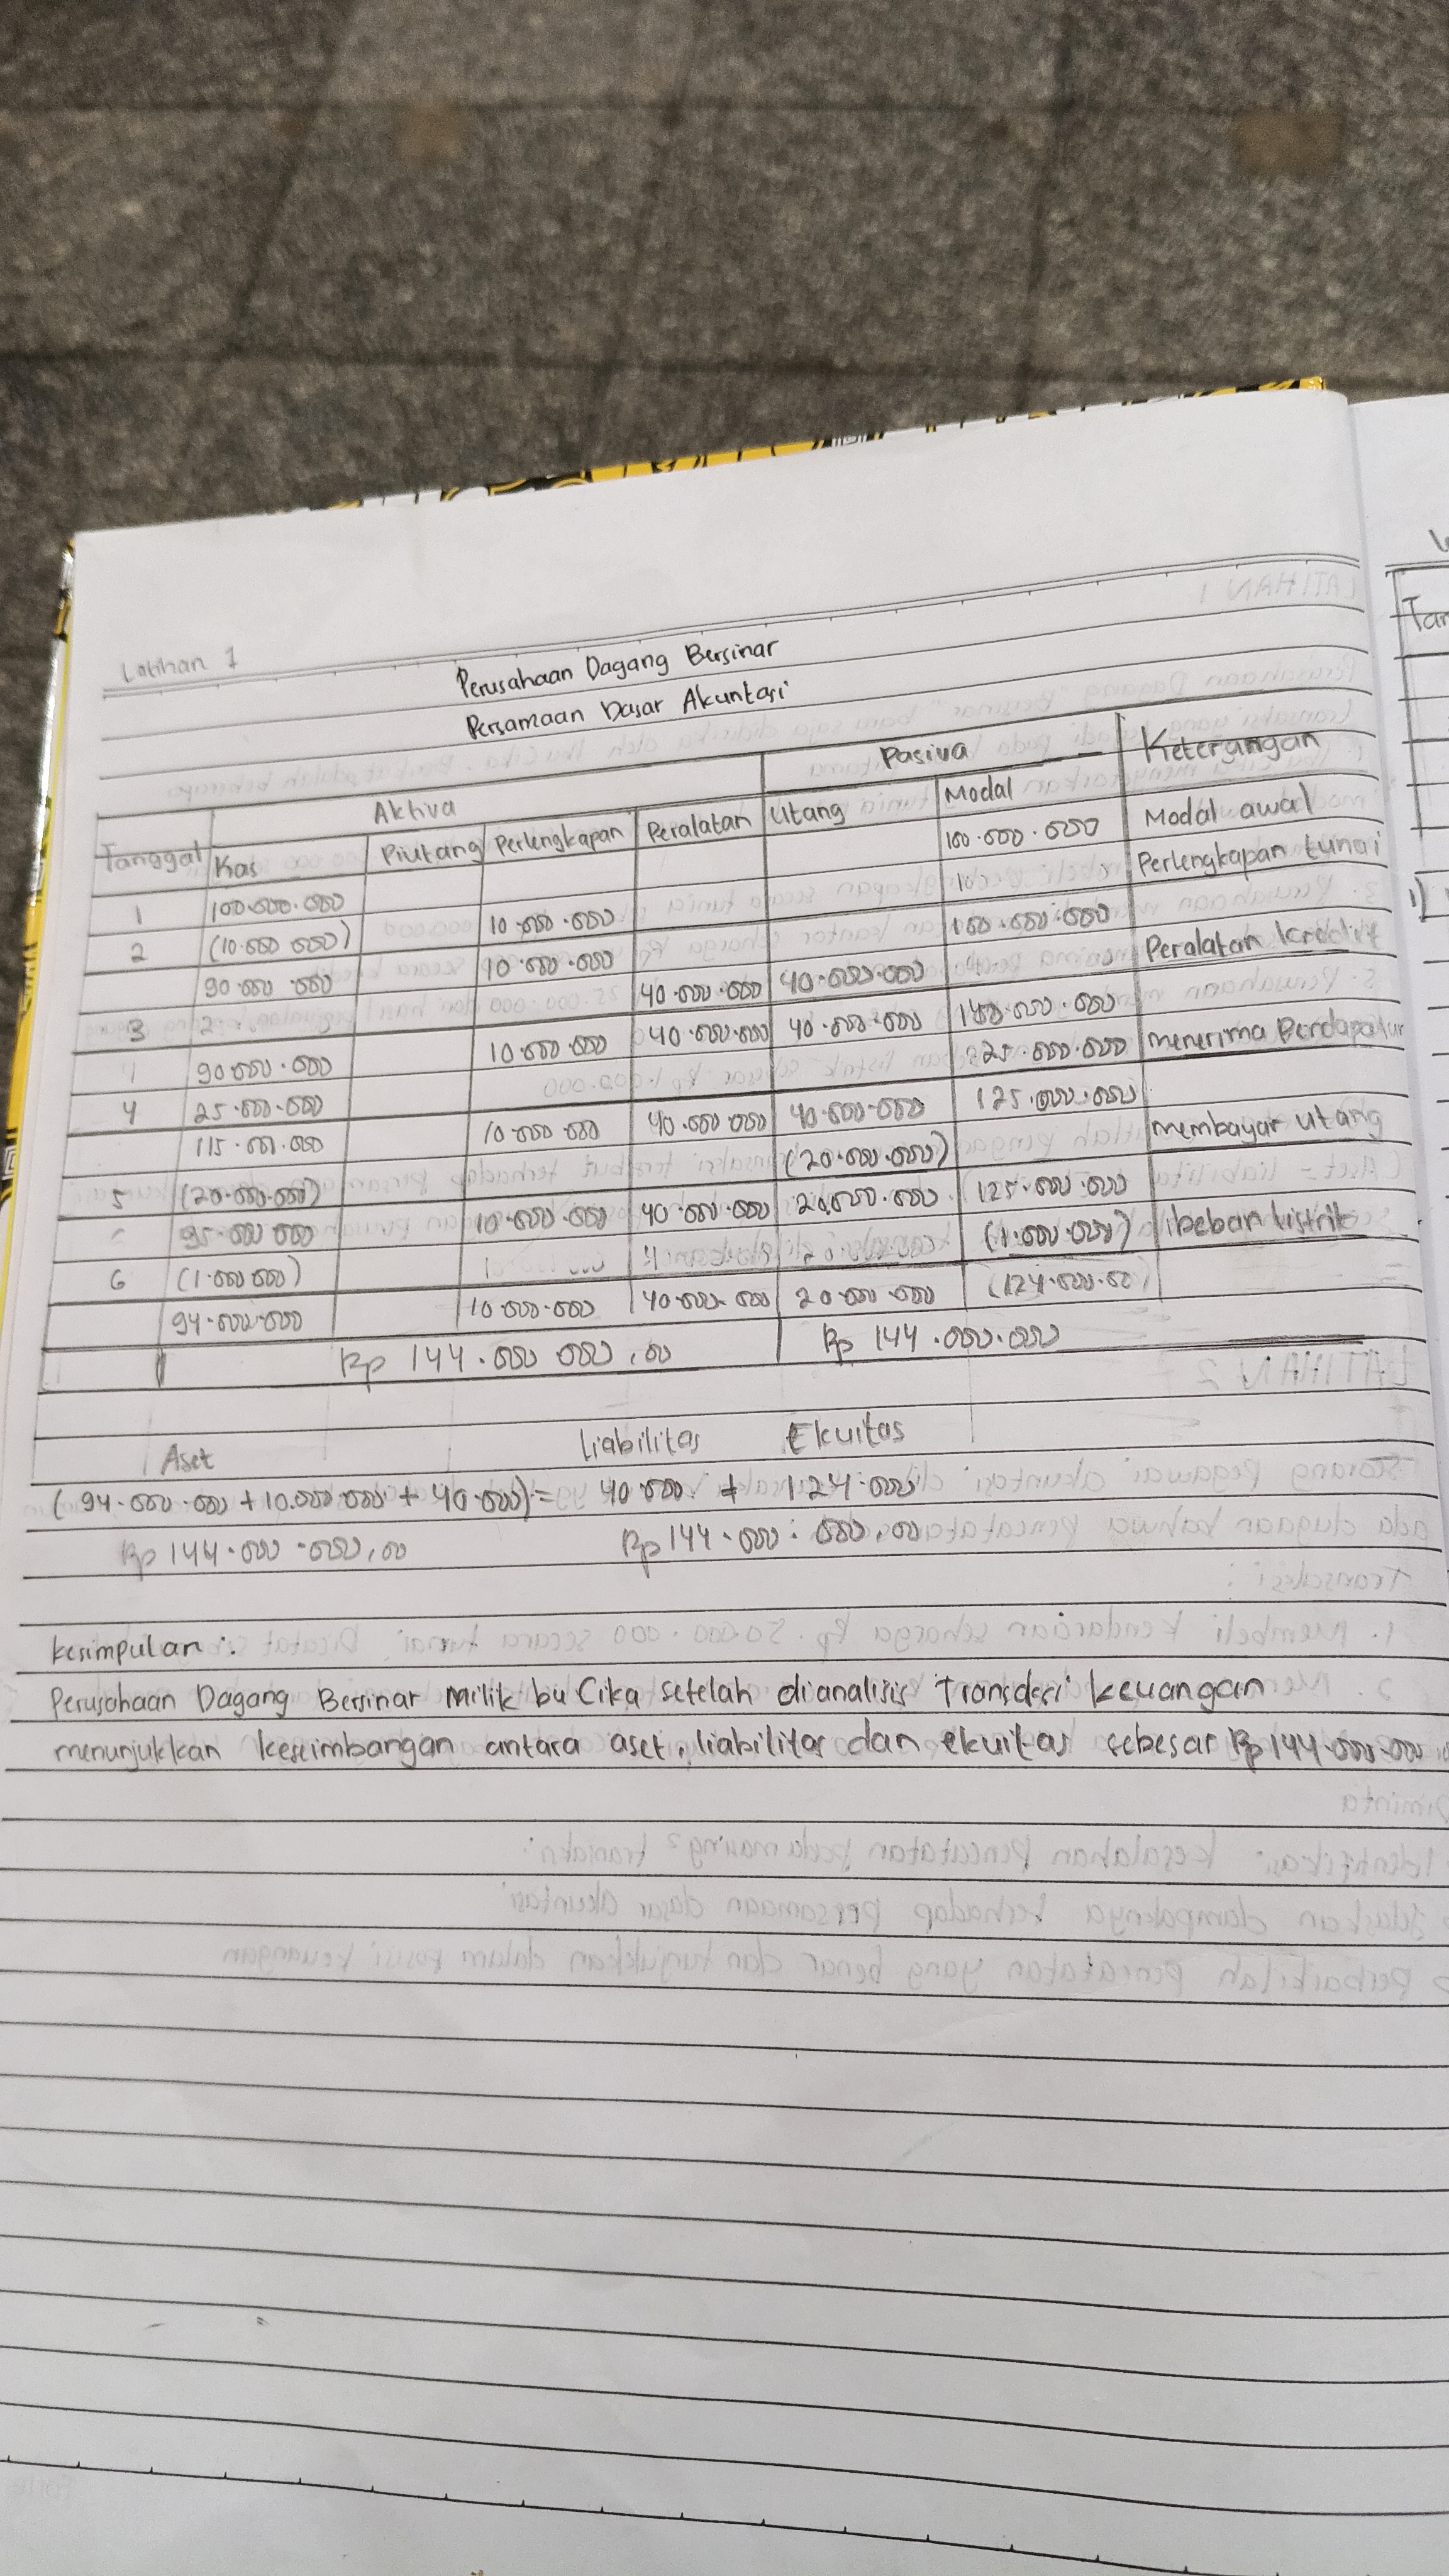 Latihan 1
Perusahaan Dagang Bersinar
Persamaan Dasar Akuntasi
Tanggal Aktiva Pasiva Keterangan
Kas Piutang Perlengkapan Peralatan Utang Modal
1 100.000.000 100.000.000 Modal awal
2 (10.000 000) 10.000.000 Perlengkapan tunai
90.000.000 10.000.000 100.000.000
3 40.000.000 40.000.000 Peralatan kredit
90.000.000 10.000.000 40.000.000 40.000.000 100.000.000
4 25.000.000 25.000.000 menerima Perdapatan
115.000.000 10.000.000 40.000.000 40.000.000 125.000.000
5 (20.000.000) (20.000.000) membayar utang
95.000.000 10.000.000 40.000.000 20.000.000 125.000.000
6 (1.000.000) (1.000.000) beban listrik
94.000.000 10.000.000 40.000.000 20.000.000 (124.000.00
Rp 144.000 000,00 Rp 144.000.000
Aset Liabilitas Ekuitas
(94.000.000 + 10.000.000 + 40.000) = 40 000. + 124.000
Rp 144.000.000,00 Rp 144.000.000,00
kesimpulan :
Perusahaan Dagang Bersinar Milik bu Cika setelah dianalisis Transaksi keuangan
menunjukkan keseimbangan antara aset, liabilitas dan ekuitas sebesar Rp 144.000.000
Tan
1)